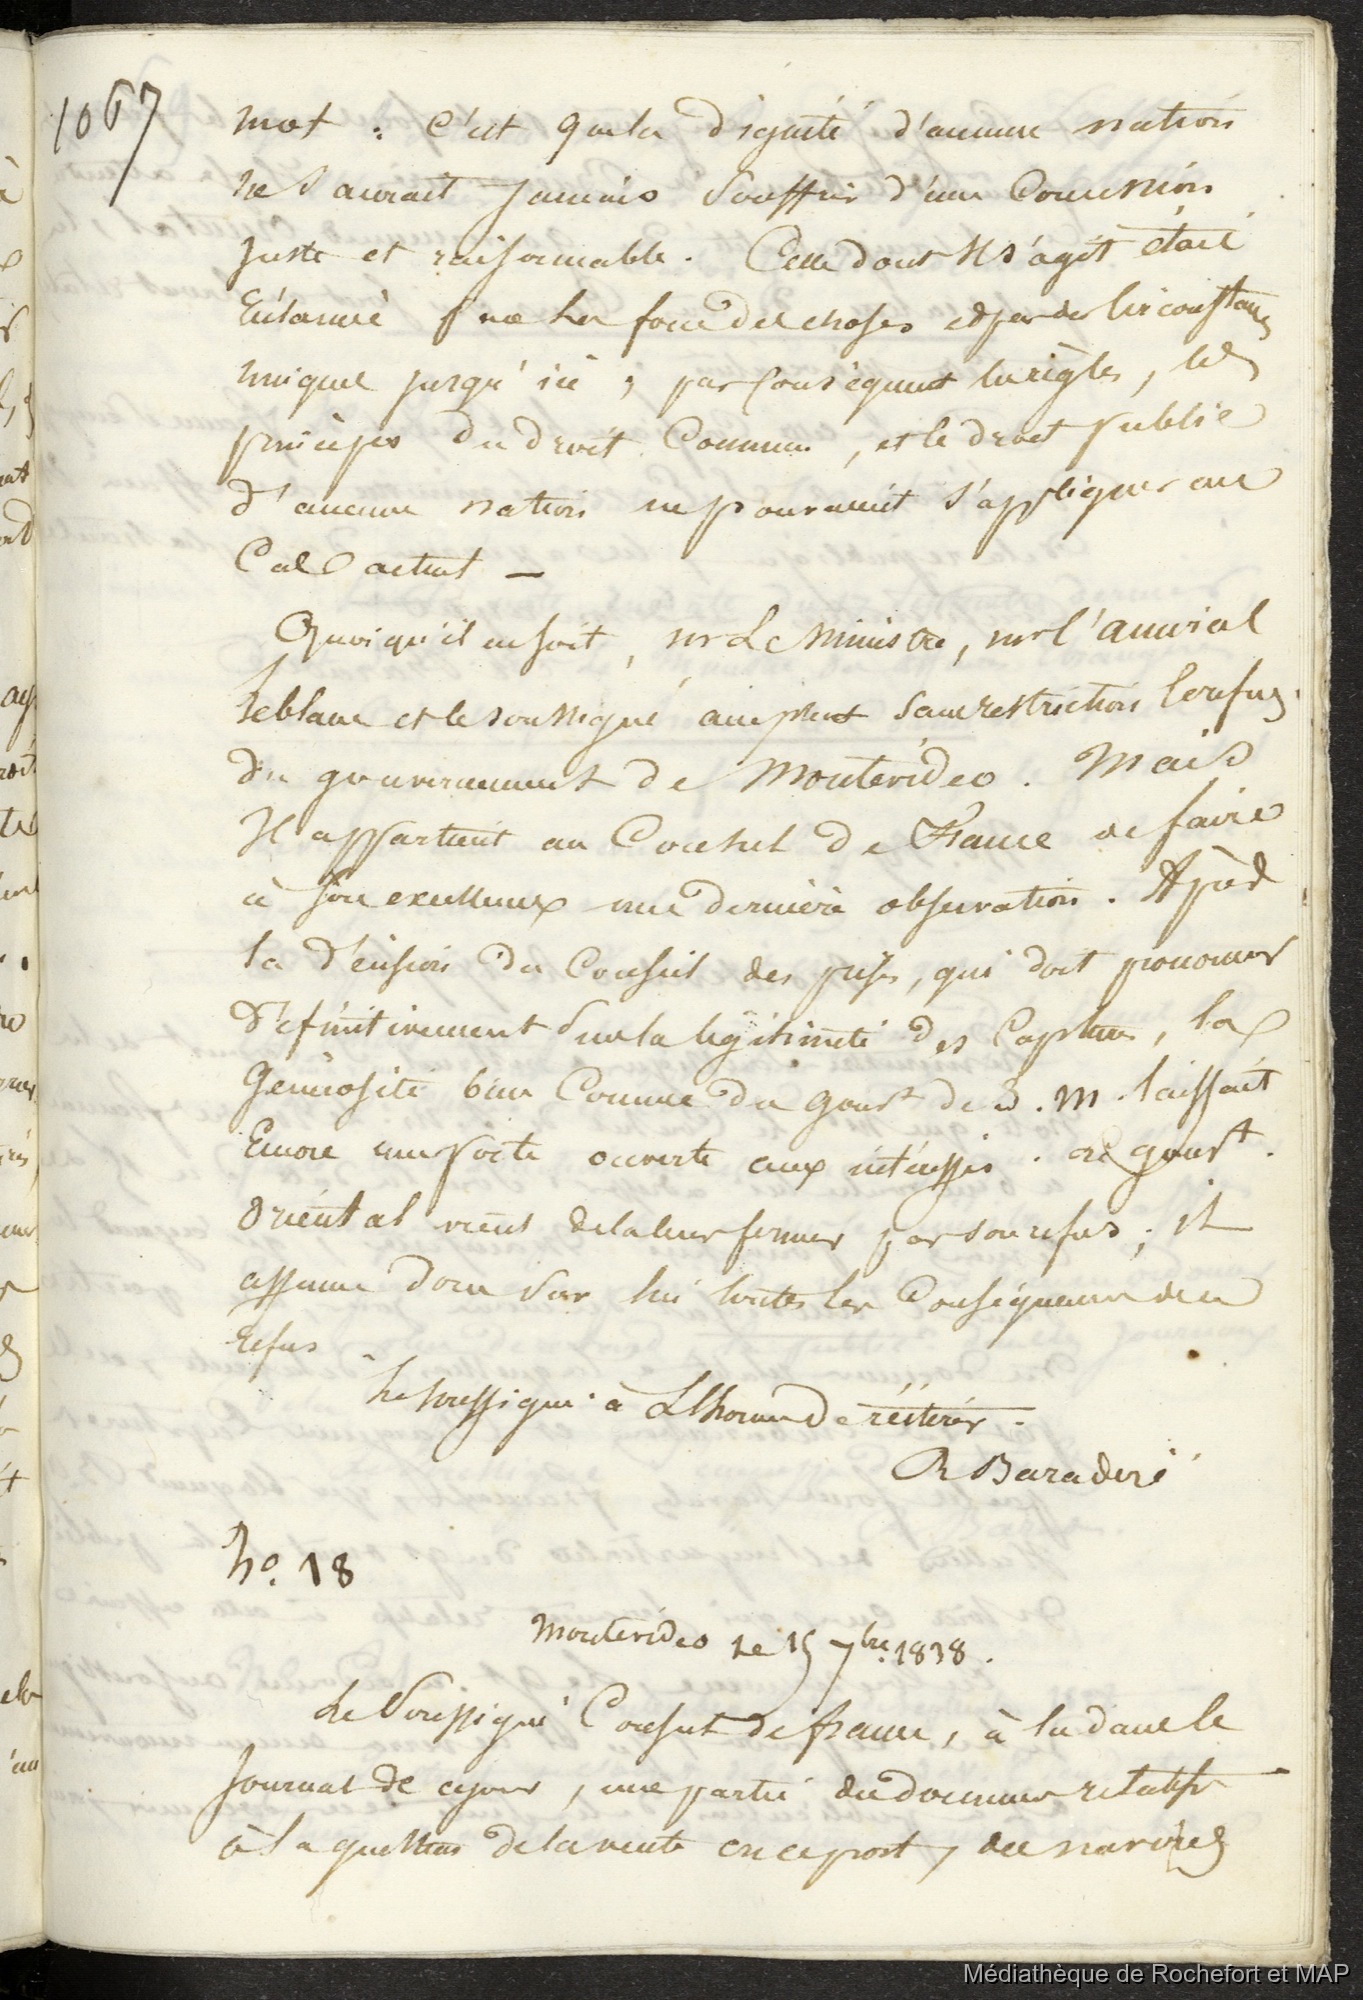 1067
mot : c'est que la dignité d'aucune nation
ne saurait jamais souffrir d'une Concession
juste et raisonnable. Celle dont il s'agit était
réclamée par la force des choses et par des circonstances
unique jusqu'ici ; par conséquent les règles, les
principes du droit Commun, et le droit public
d'aucune nation ne pouvaient s'appliquer au
Cas actuel —
Quoiqu'il en soit, mr Le Ministre, mr l'amiral
Leblanc et le soussigné acceptent sans restriction le refus
du gouvernement de Montévidéo. Mais
Il appartient au Consul de France de faire
à son excellence une dernière observation. Après
la décision du Conseil des prises, qui doit prononcer
définitivement sur la légitimité des Captures, la
Générosité bien Connue du gouvt de S. M. laissait
Encore une porte ouverte aux intéressés. le gouvt.
Oriental vient de la leur fermer par son refus ; il
assume donc sur lui toutes les Conséquences de ce
refus
Le soussigné à L'honneur de réitérer.
R Baradère
No. 18
Montévidéo Le 15 7bre 1838.
Le Soussigné Consul de france, à lu dans le
Journal de ce jour, une partie des documens relatifs
à la question de la vente en ce port, des navires
Médiathèque de Rochefort et MAP